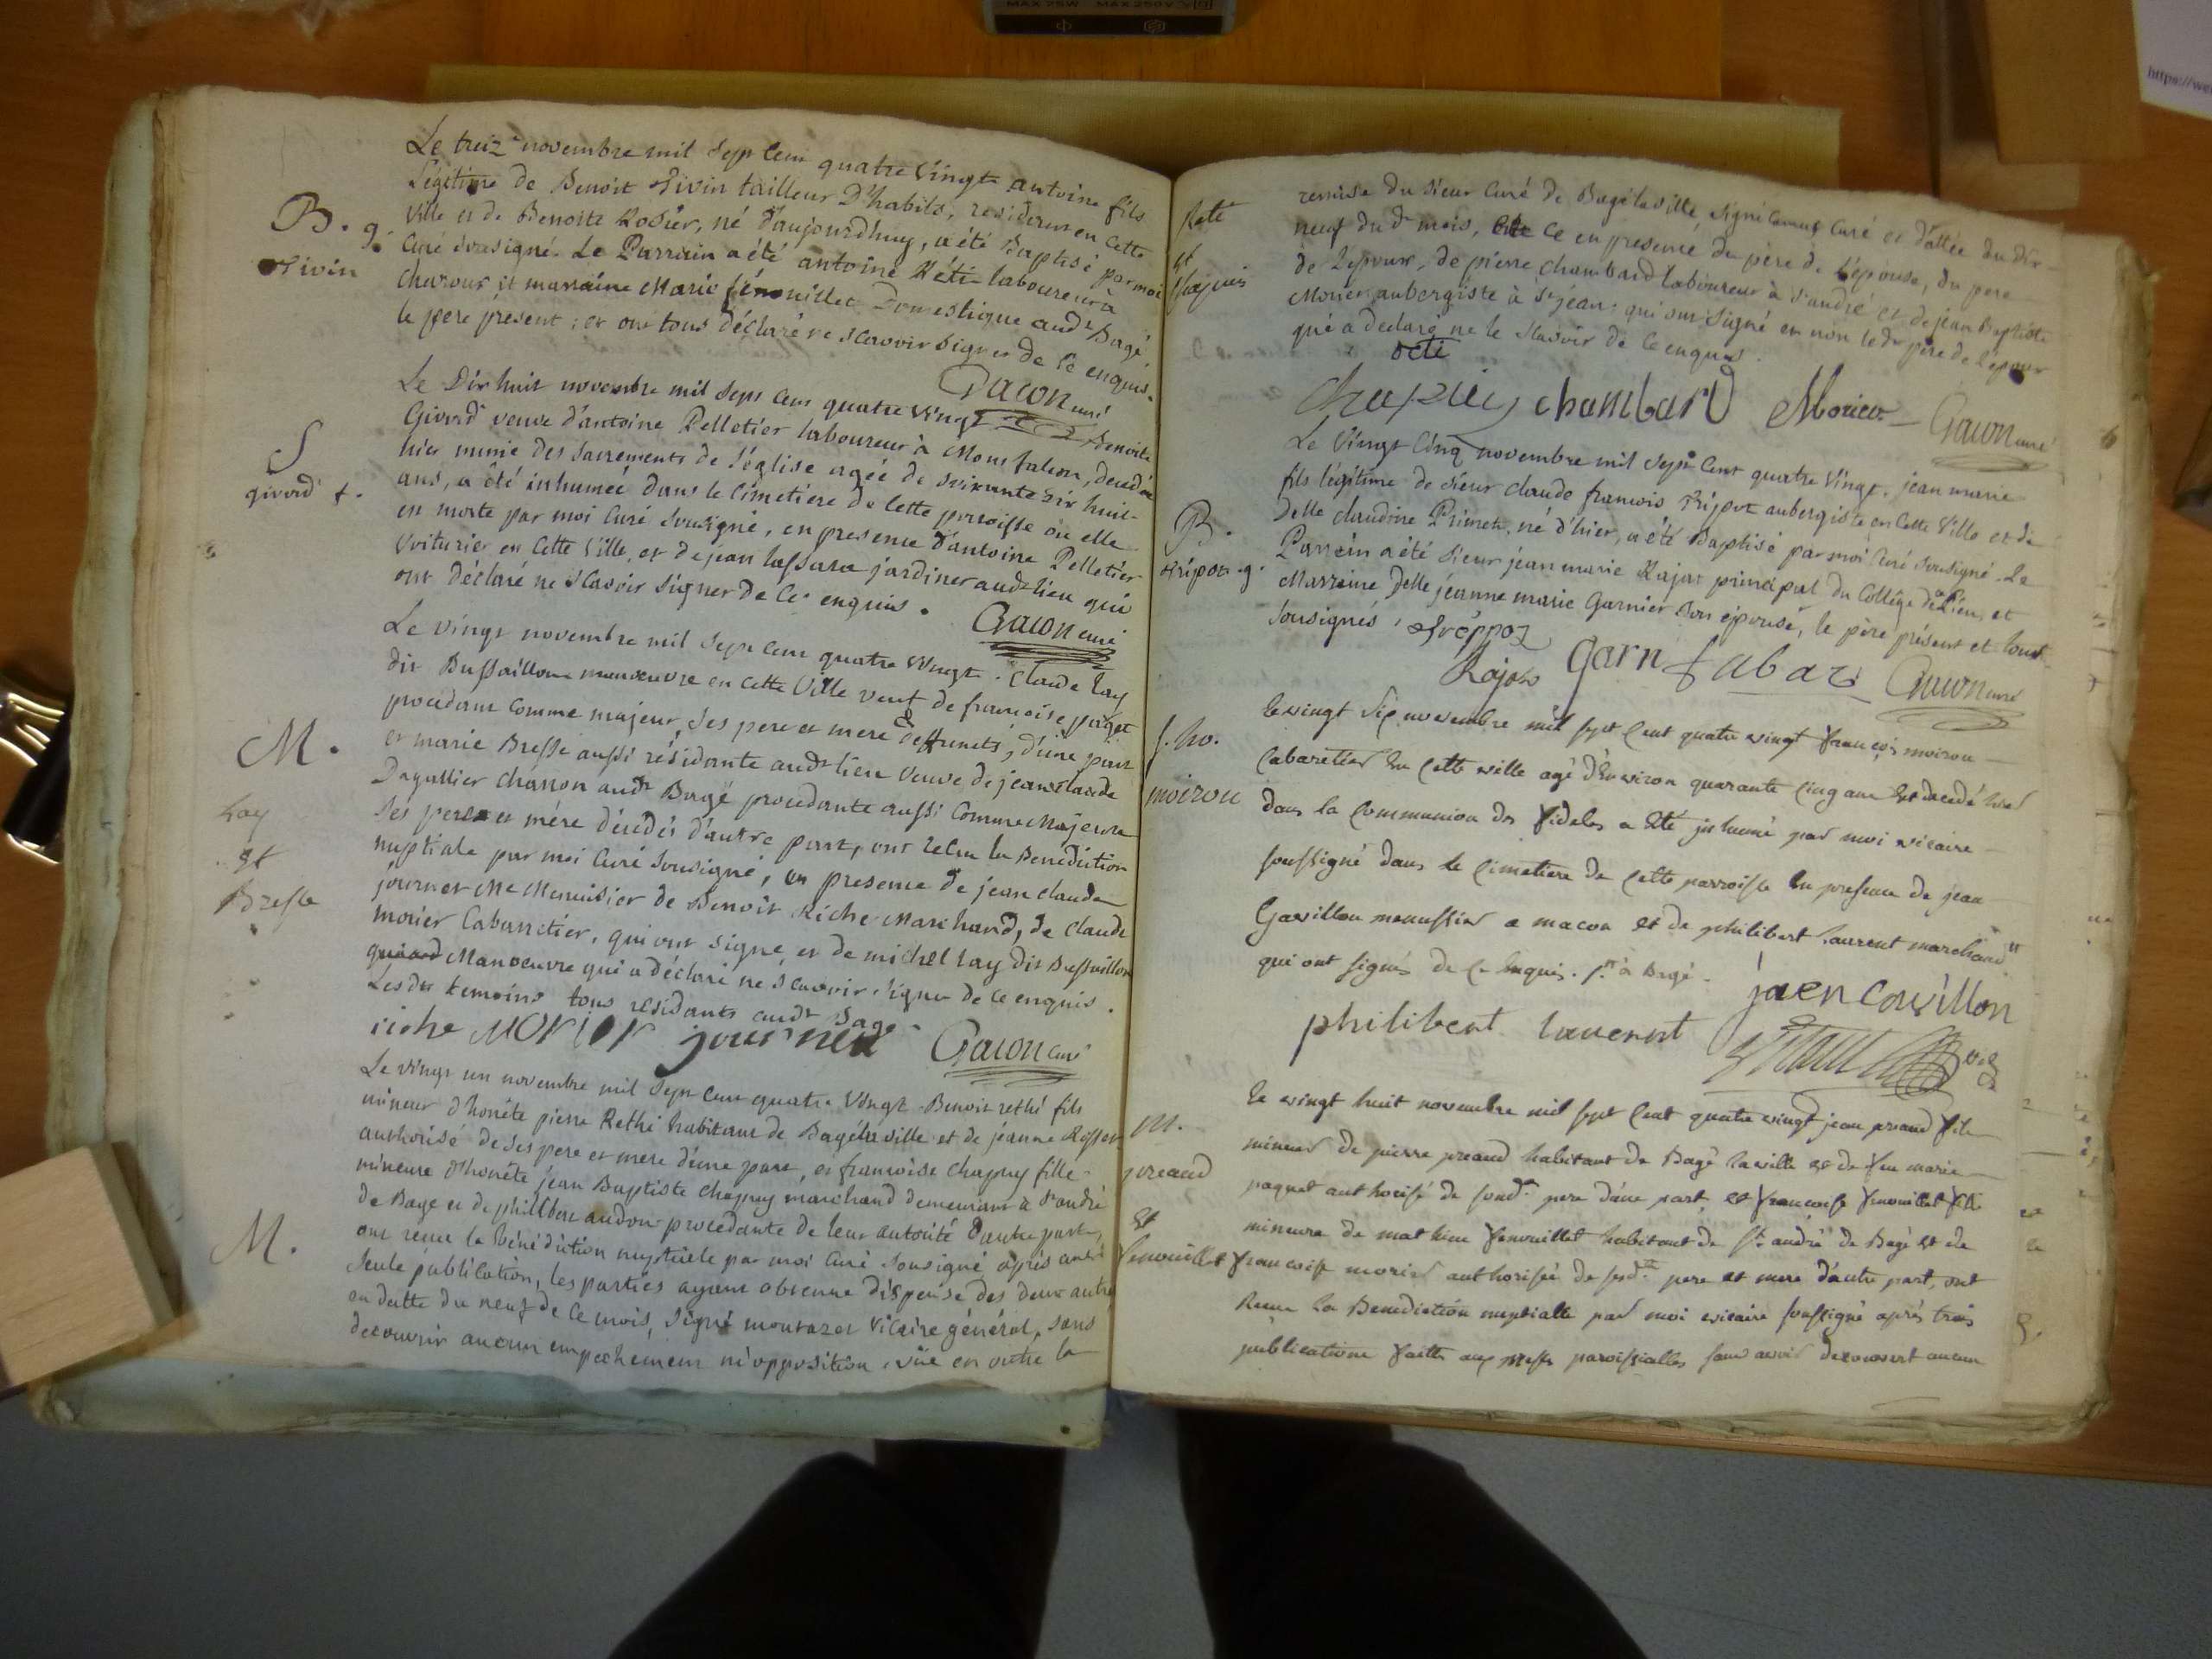 Le treiz.e novembre mil Sept Cent quatre Vingt antoine fils
Légitime de Benoit Tivin tailleur D'habits, resideren en Cette
B. g. Ville et de Benoite Rosier, né d'aujourdhuy, a été Baptisé par moi
Tivin Curé sousigné. Le Parrain a été antoine Réti laboureur à
et marraine Marie fénouillet Domestique aud.t Bagé
le pere présent ; et ont tous déclaré ne scavoir signer de Ce enquis.
Gacon curé
Le Dix huit novembre mil Sept Cent quatre Vingt Benoite
Girard veuve d'antoine Pelletier laboureur à Monsfalcon, decedée
S hier munie des Sacrements de l'église agée de soixante dix huit
girard f. ans, a été inhumée dans le Cimetiere de Cette paroisse où elle
en morte par moi Curé Sousigné, en presence d'antoine Pelletier
voiturier en Cette Ville, et de jean jardinier aud.t lieu qui
ont déclaré ne Scavoir Signer de Ce enquis.
Gacon curé
Le vingt novembre mil Sept Cent quatre Vingt. Claude Lay
dit Bussaillon manoeuvre en cette Ville veuf de francoise paget
procedant Comme majeur, Ses pere et mere deffunts, d'une part
M. et marie Bresse aussi résidante aud.t lieu Veuve de jean claude
Dagallier charron aud.t Bagé procedante aussi Comme Majeure
Lay Ses pere et mére décédés d'autre part, ont recu la Benediction
et nuptiale par moi Curé Sousigné, en presence de jean claude
Bresse journet M.e Menuisier de Benoit Riche Marchand, de Claude
morier Cabaretier, qui ont signé, et de michel Lay dit Bussaillon
Manoeuvre qui a déclaré ne scavoir signer de Ce enquis.
Lesd.ts temoins tous residants aud.t Bagé
riche MORier journet Gacon curé
Le vingt un novembre mil Sept Cent quatre Vingt Benoit rethi fils
mineur d'honête pierre Rethi habitant de Bagé la ville et de jeanne
authorisé de Ses pere et mere d'une part, et francoise Chapuy fille
mineure d'honête jean Baptiste Chapuy marchand demeurant à S.t andré
de Bage et de philiberte audon procedante de leur autorité d'autre part,
M. ont recu la bénédiction nuptiale par moi Curé Sousigné après une
Seule publication, les parties ayant obtenue dispense des deux autres
en datte du neuf de Ce mois, Signé mourazet Vicaire général, sans
decouvrir aucun empechement ni opposition, vüe en outre la
Reti
et
Chapuis
remise du Sieur Curé de Bagé la Ville signé Curé et dattée du dix
neuf du d.t mois, Ce en presence du père de l'épouse, du pere
de l'époux, de pierre Chambard laboureur à S.t andré et de jean Baptiste
Morier aubergiste à S.t jean qui ont Signé et non led.t père de l'époux
qui a declaré ne le Scavoir de Ce enquis.
Chapuis chambard Morier Gacon curé
Le Vingt Cinq novembre mil Sept Cent quatre Vingt, jean marie
fils légitime de Sieur claude francois Tripoz aubergiste en Cette Ville et de
B. Delle claudine Primet, né d'hier, a été Baptisé par moi Curé Sousigné. Le
Tripoz g. Parrein a été Sieur jean marie Rajat principal du Collége de Lieu, et
Marraine Delle jeanne marie Garnier Son épouse, le père présent et tous
Sousignés.
Rajat Garn Gacon curé
S. ho.
moirou
le vingt Six novembre mil Sept Cent quatre vingt françois moirou
Cabaretier En Cette ville agé d'Environ quarante Cinq ans Est decedé hier
dans la Communion des fideles a Eté inhumé par moi vicaire
soussigné dans le Cimetiere de Cette parroisse En presence de jean
Gavillon menussier a macon et de philibert Laurent marchand
qui ont signés de Ce Enquis. à Bagé.
philibert laurent
M.
preaud
Et
fenouillet
Le vingt huit novembre mil Sept Cent quatre vingt jean preaud fils
mineur de pierre preaud habitant de Bagé la ville et de feu marie
paquet authorisé de sond.t pere d'une part, et francoise fenouillet fille
mineure de mathieu fenouillet habitant de S.t andré de Bagé et de
francoise morier authorisée de sesd.ts pere et mere d'autre part, ont
Recue La Benediction nuptialle par moi vicaire soussigné après trois
publications faittes aux messes paroissialles sans avoir decouvert aucun